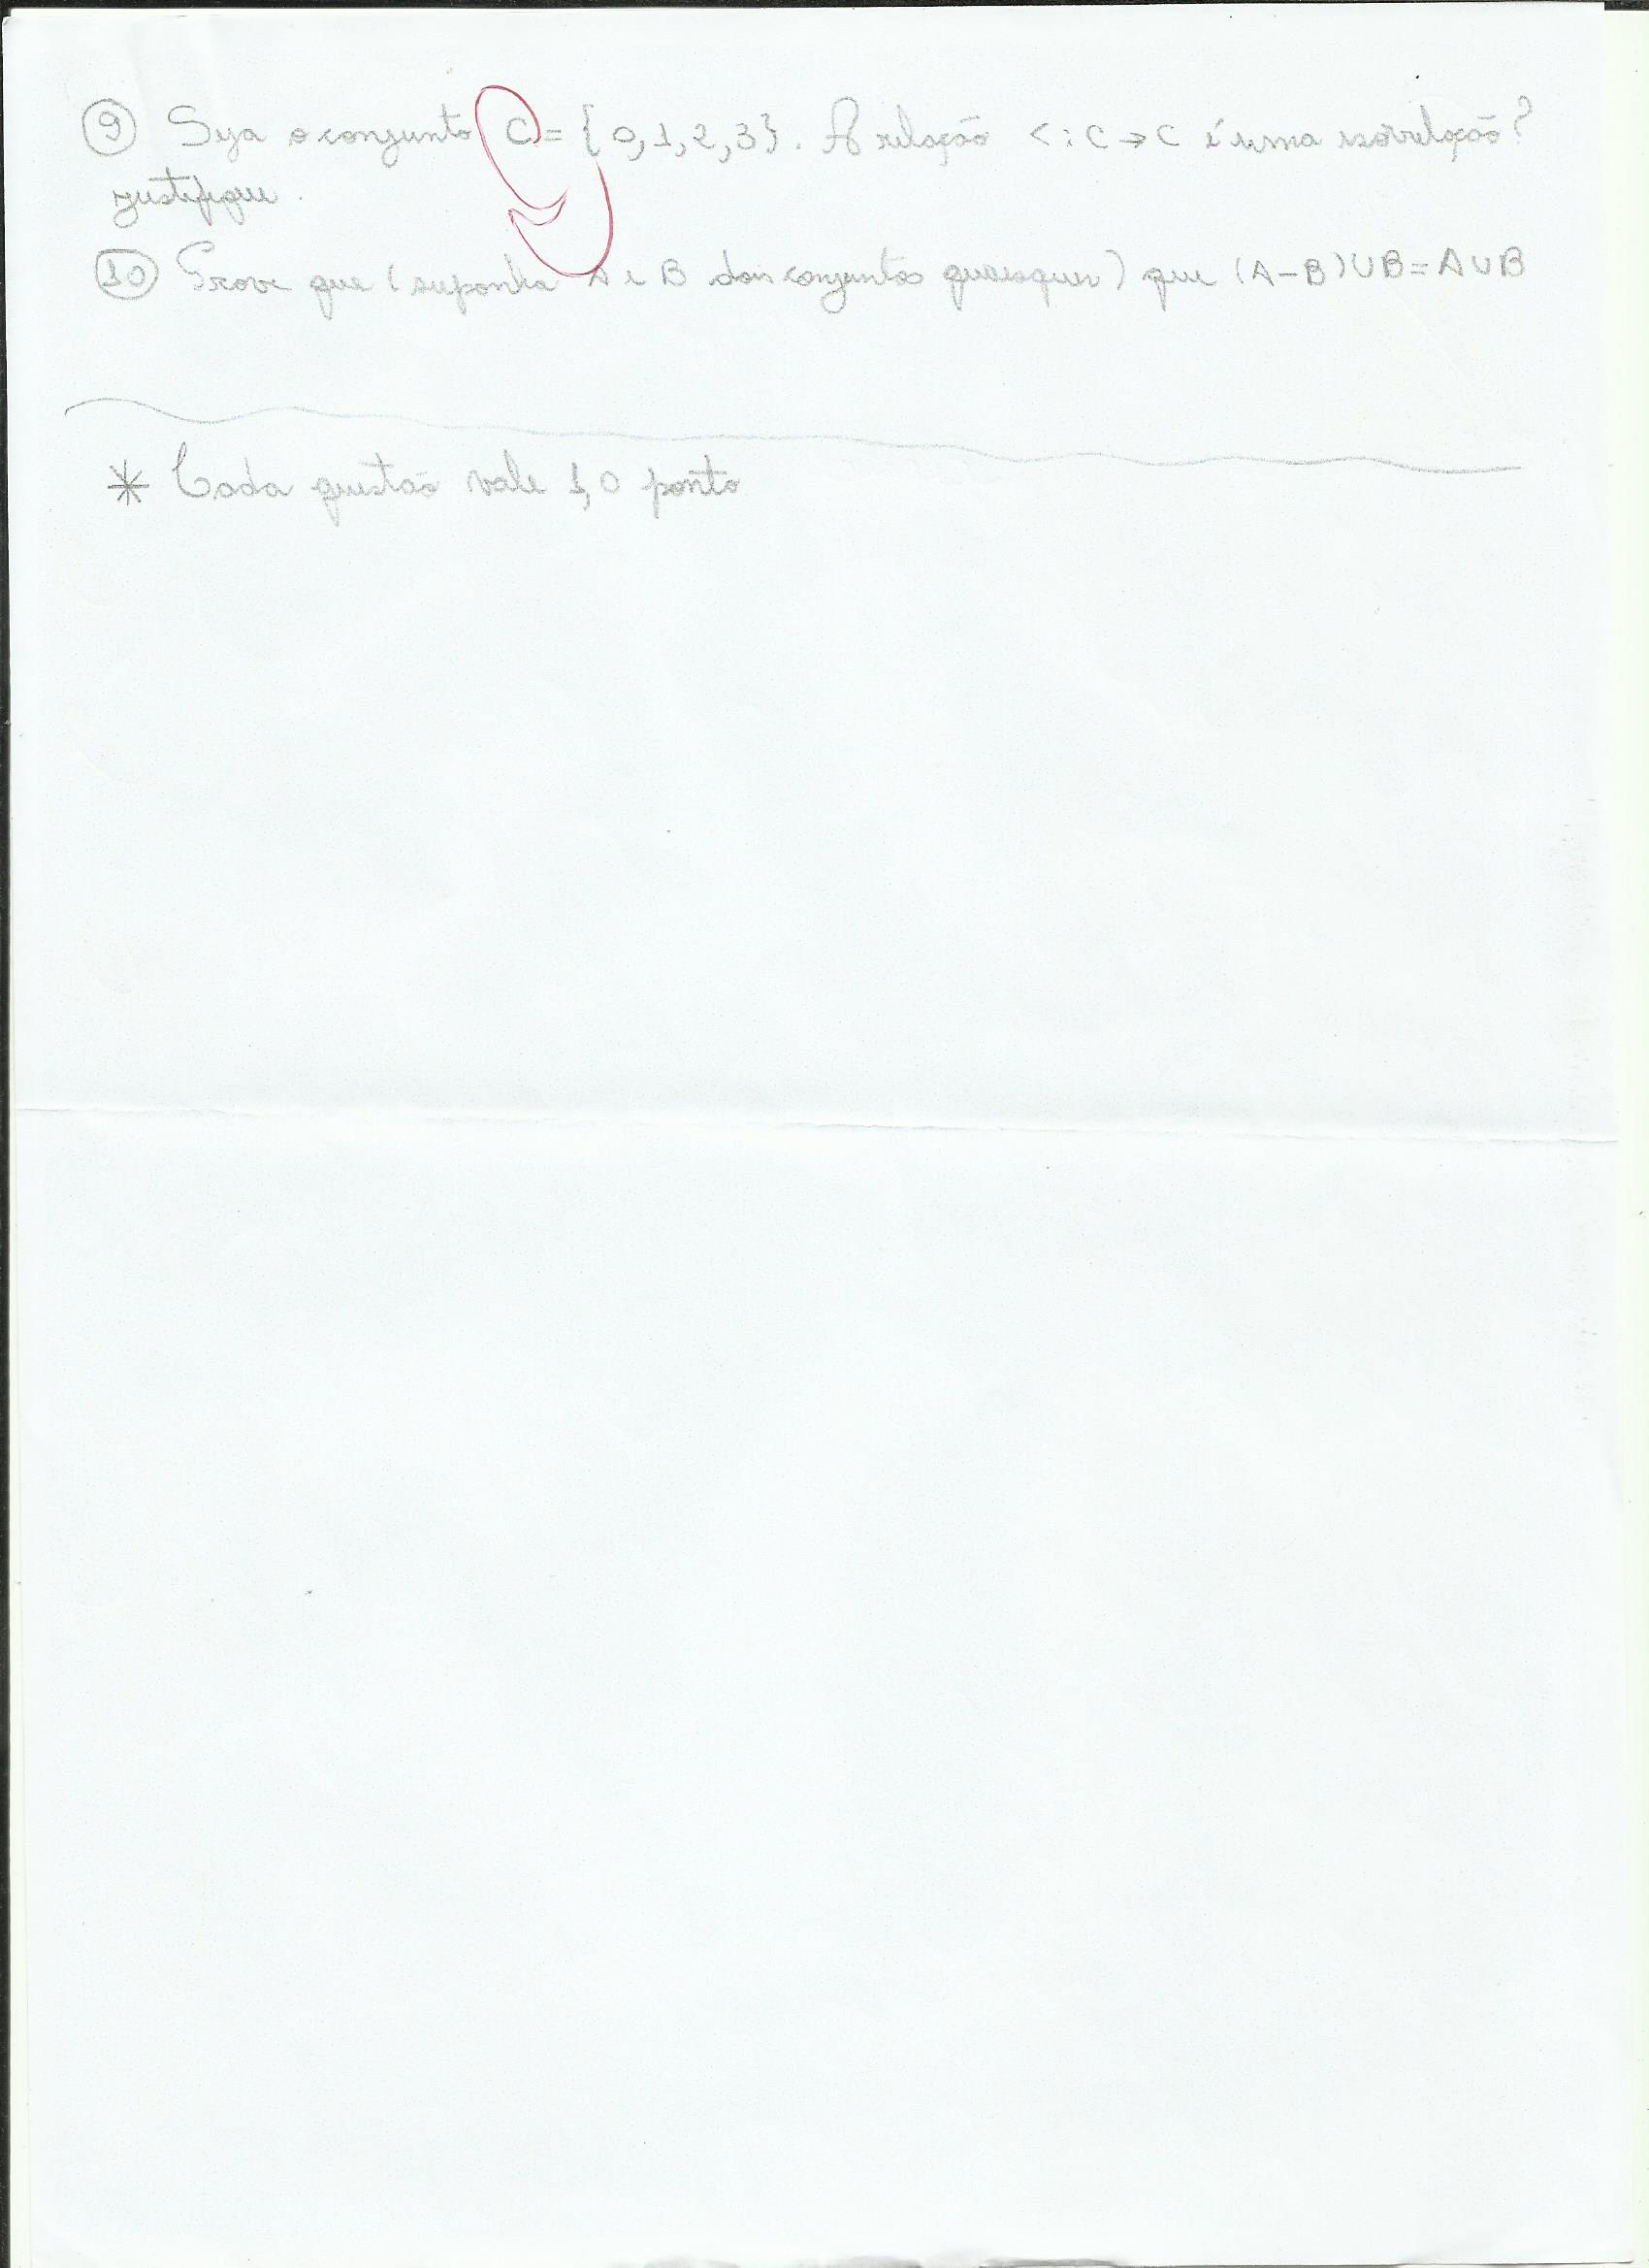 9 Seja o conjunto C = { 0, 1, 2, 3 }. A relação < : C → C é uma isorrelação?
justifique.
10 Prove que (suponha A e B dois conjuntos quaisquer) que (A-B)∪B = A∪B
* Cada questão vale 1,0 ponto